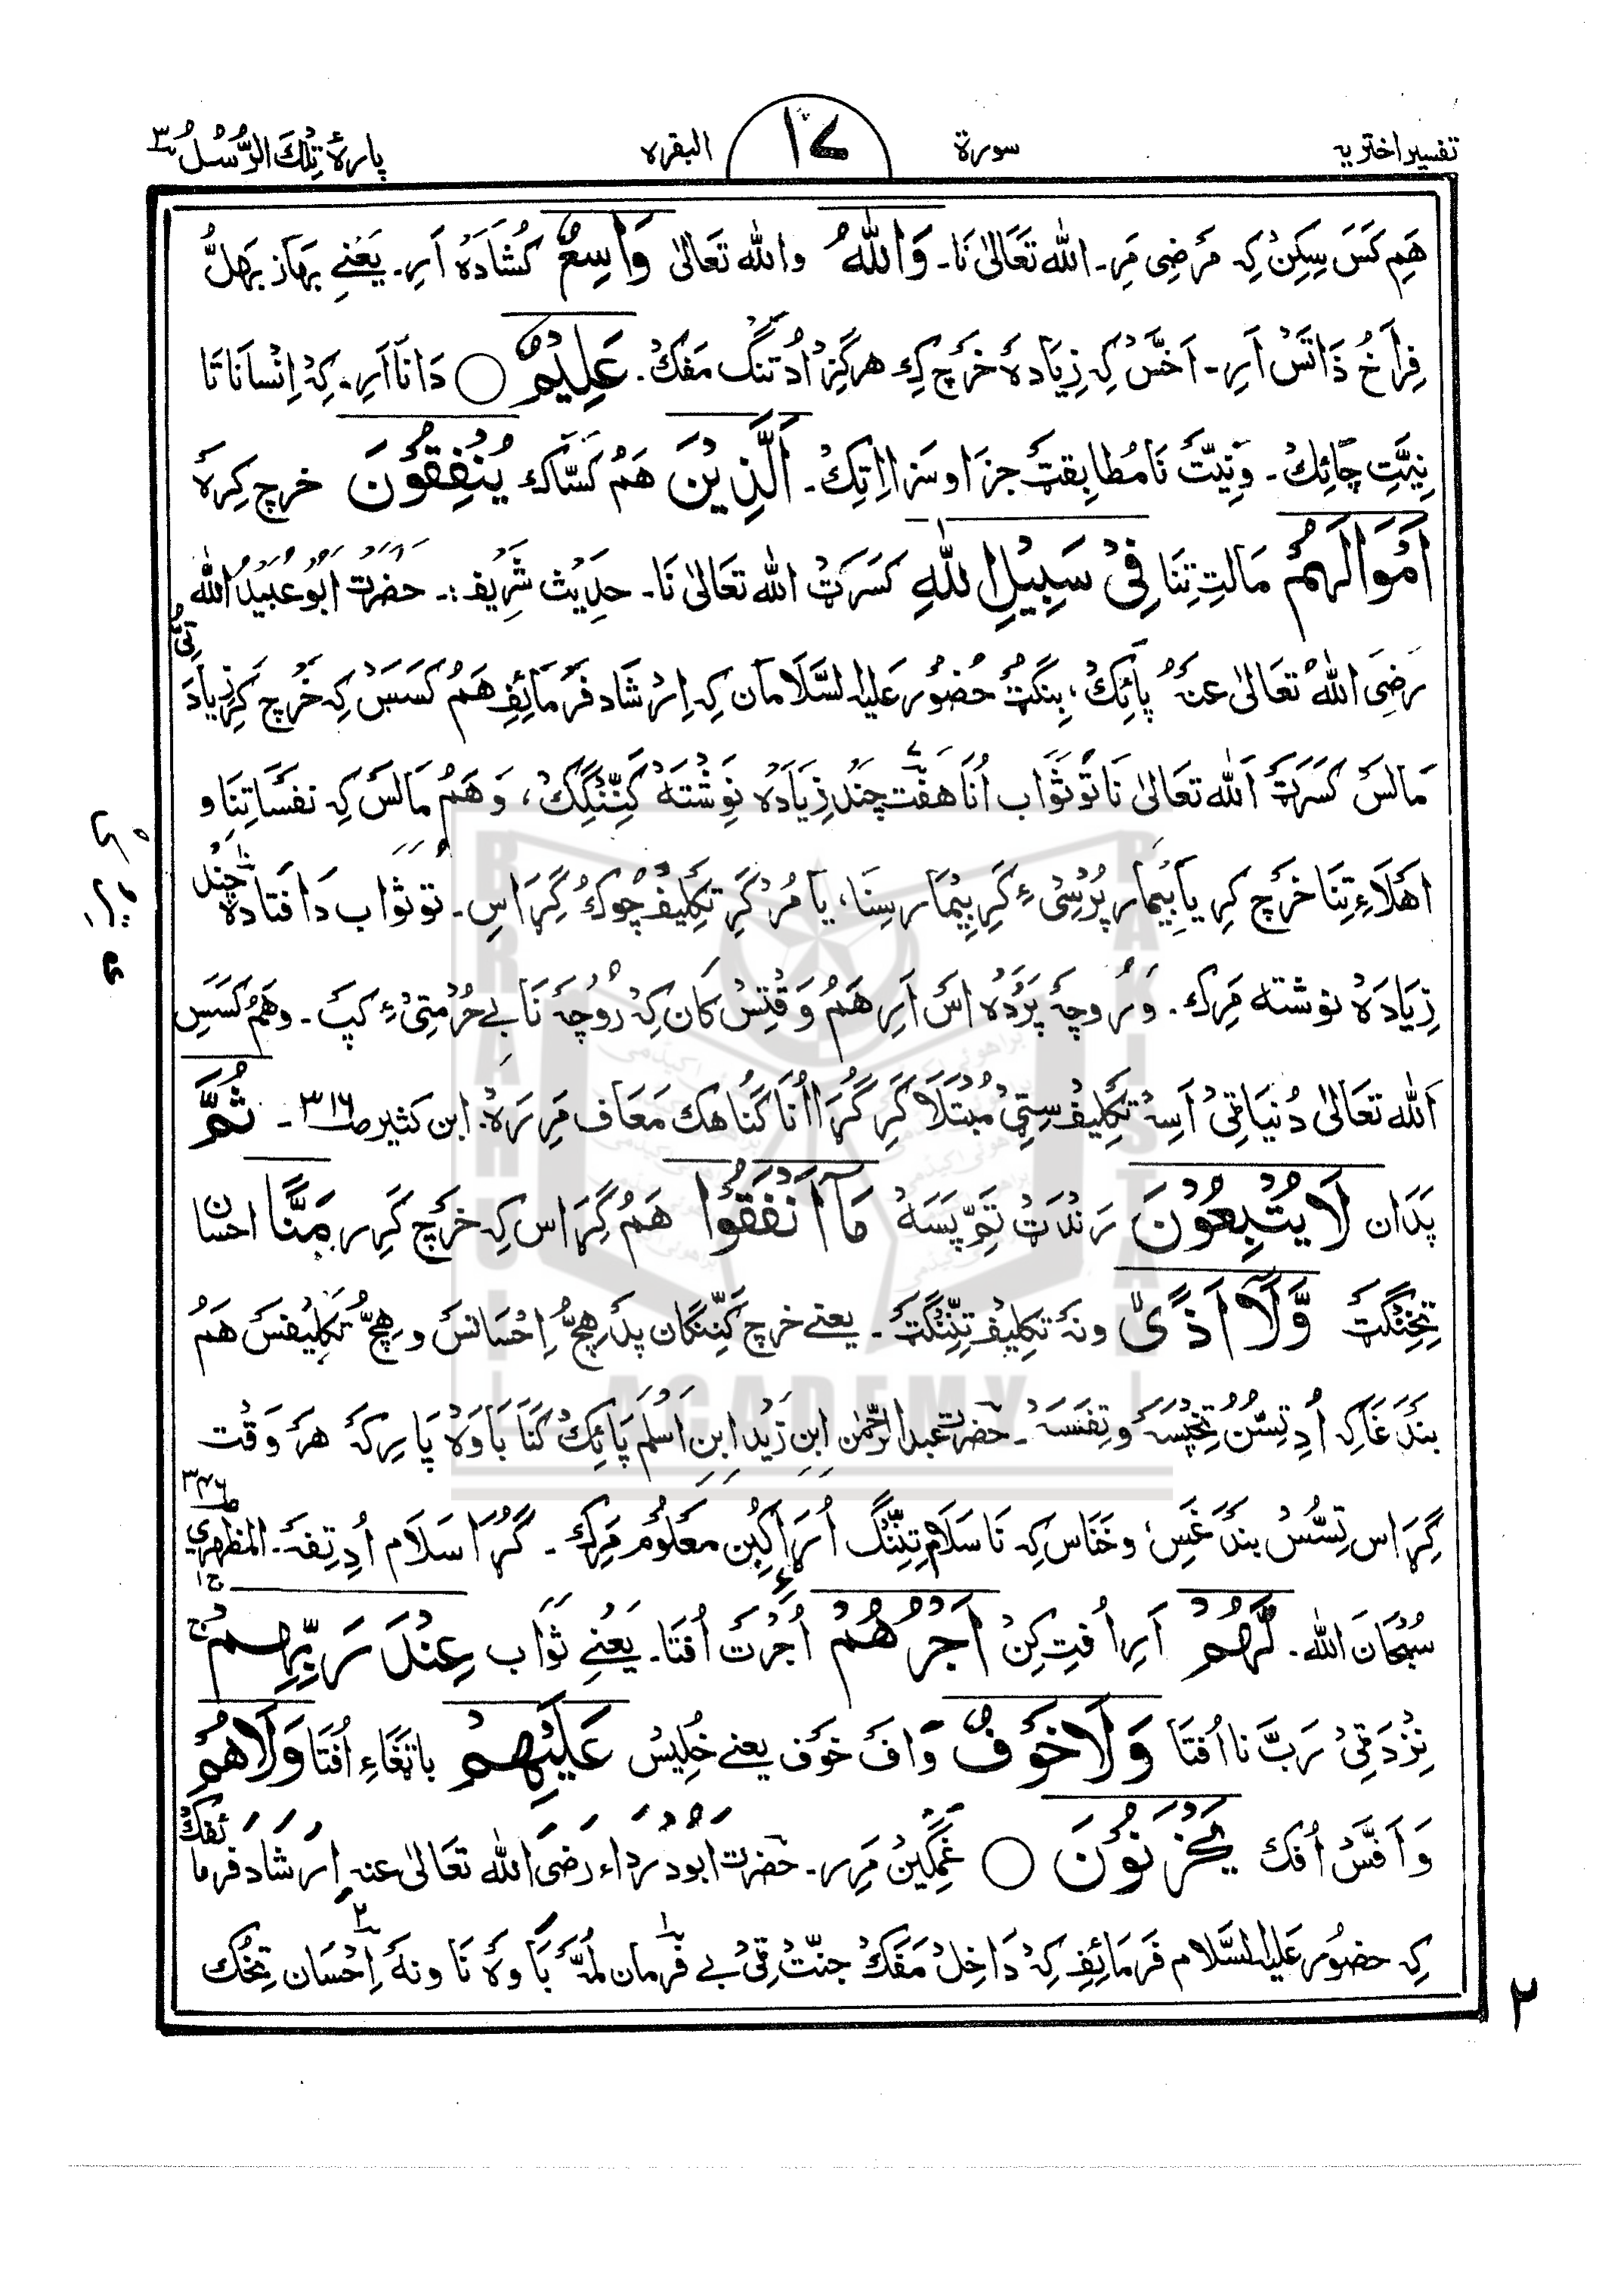 تفسیر اختریہ سورۃ ١٧ البقرہ پارۂ تِلْكَ الرُّسُلُ ٣
هَمِ كَسَ سِكِنْ كِہ مَرضِی مَرِ۔ اللہ تَعَالیٰ نَا۔ وَاللّٰهُ واللہ تَعَالیٰ وَاسِعٌ كُشَادَہ اَرِ۔ یَعْنِے بَهَاز بَهلُّ
فِرَاخُ ذَاتَسْ اَرِ۔ اَخَّسْ كِہ زِیَادہ خَرچ كِ هرگِز اُدتنگ مَفَكْ۔ عَلِيْمٌ ○ دَانَا اَرِ۔ كِہْ اِنْسَانَاتَا
نِیَّتِ چَائِكْ۔ وَنِیَّتْ نَا مُطابِقَتْ جزَا و سَزا اِتِكْ۔ اَلَّذِيْنَ هَمُ كَسَّاك يُنْفِقُوْنَ خرچ كِرہ
اَمْوَالَهُمْ مَالتِ تِنَا فِيْ سَبِيْلِ اللّٰهِ كَسَرَٹْ اللہ تَعَالیٰ نَا۔ حدِیْث شَرِیْف :۔ حَضرت اَبُو عُبَیْدُ اللہ
رَضِیَ اللہُ تَعَالیٰ عَنہُ پَائِكْ، بِنگُٹْ حُضُوْر عَلَیہِ السَّلَامَان كِہ اِرْشَاد فَرْمَائِفِ هَمُ كَسَسْ كِہ خَرچ كَرِ زِیَادَ
مَالَسْ كَسَرَٹ اَللہ تعَالیٰ نَا تَو ثَواب اُنَا هَفْت چَند زِیَادَہ نَوِشْتَہ كَنِّنْگِكْ، وَهَمُ مَالَسْ كِہ نفسَا تِنَا و
اَهَلَاءِ تِنَا خَرچ كِرِ یَا بِیْمَار پُرْسِیْ ءِ كَرِ بِیْمَارسِنَا، یَا مُر كَرِ تَكلِیْف چُوكُ گِرَاسِ۔ تَو ثَواب دَافتَا دَہ چَند
زِیَادَہ نوشتہ مَرِك۔ و روچہ پَرْدَہ اَسْ اَرِ هَمُ وَقْتِسْ كَان كِہ رُوْچَہ نَا بے حُرْمَتِیْ ءِ كپَ۔ وهَمُ كَسَسِ
اَللہ تَعَالیٰ دُنیَا ٹِیْ اَسِہْ تَكلِیْف سِتیْ مُبتَلَا كَرِ گُرَا اُنَا گُنَاهك مَعَاف مَرِرَہ۔ ابن كثیر صـ٣١٦۔ ثُمَّ
پَدَان لَا يُتْبِعُوْنَ رَندَٹْ تَمِّپَسَہ مَآ اَنْفَقُوْا هَمُ گِرَاس كِہ خَرچ كَرِر مَنًّا احسان
تِخِنْگَٹْ وَّلَآ اَذًى ونہ تكلِیْف تِنِّنْگَٹْ۔ یعنے خرچ كَنِّنْگَان پَد هِچُّ اِحْسَانَسْ و هِچُّ تَكلِیْفَسْ هَمُ
بَندَغَا كِہ اُدِ تِسُّنْ تِخِپَسَہ و تِفَسَہ۔ حضرت عبد الرَّحمٰن اِبنِ زَیْد اِبنِ اَسْلَمْ پَائِكْ كَنَا بَاوَہْ پَارِكَہ هَر وَقْت
گِرَاس تِسُّسْ بَندَغَسِ وخَنَاس كِہ نَا سَلَام تِنِّنْگ اُرَا كُبِن مَعْلُوْم مَرِكْ۔ گُرَا سَلَام اُدِ تِفَہ۔ المظهری
سُبْحَانَ اللہ۔ لَهُمْ اَرِ اُفتِ كِنْ اَجْرُهُمْ اُجْرَت اُفتَا۔ یَعْنِے ثَوَاب عِنْدَ رَبِّهِمْ ج
نِزْدَ ٹِیْ رَبَّ نَا اُفتَا وَلَا خَوْفٌ وَاَفْ خَوْف یعنے خُلِیْس عَلَيْهِمْ بَاتَغَاءِ اُفتَا وَلَا هُمْ
وَاَفَّسْ اُفك يَحْزَنُوْنَ ○ غَمْگِیْن مَرِر۔ حَضرت ابودرداء رَضی اللہ تَعَالیٰ عنہ اِرشَاد فَرما ئفك
كِہ حضوُر عَلَیہِ السَّلَام فَرمَائِفِ كِہْ دَاخِلْ مَفَكْ جَنَّتْ ٹِیْ بے فَرْمان لُمَّہ بَاوَہ نَا ونہ اِحْسَان تِخُك
٢